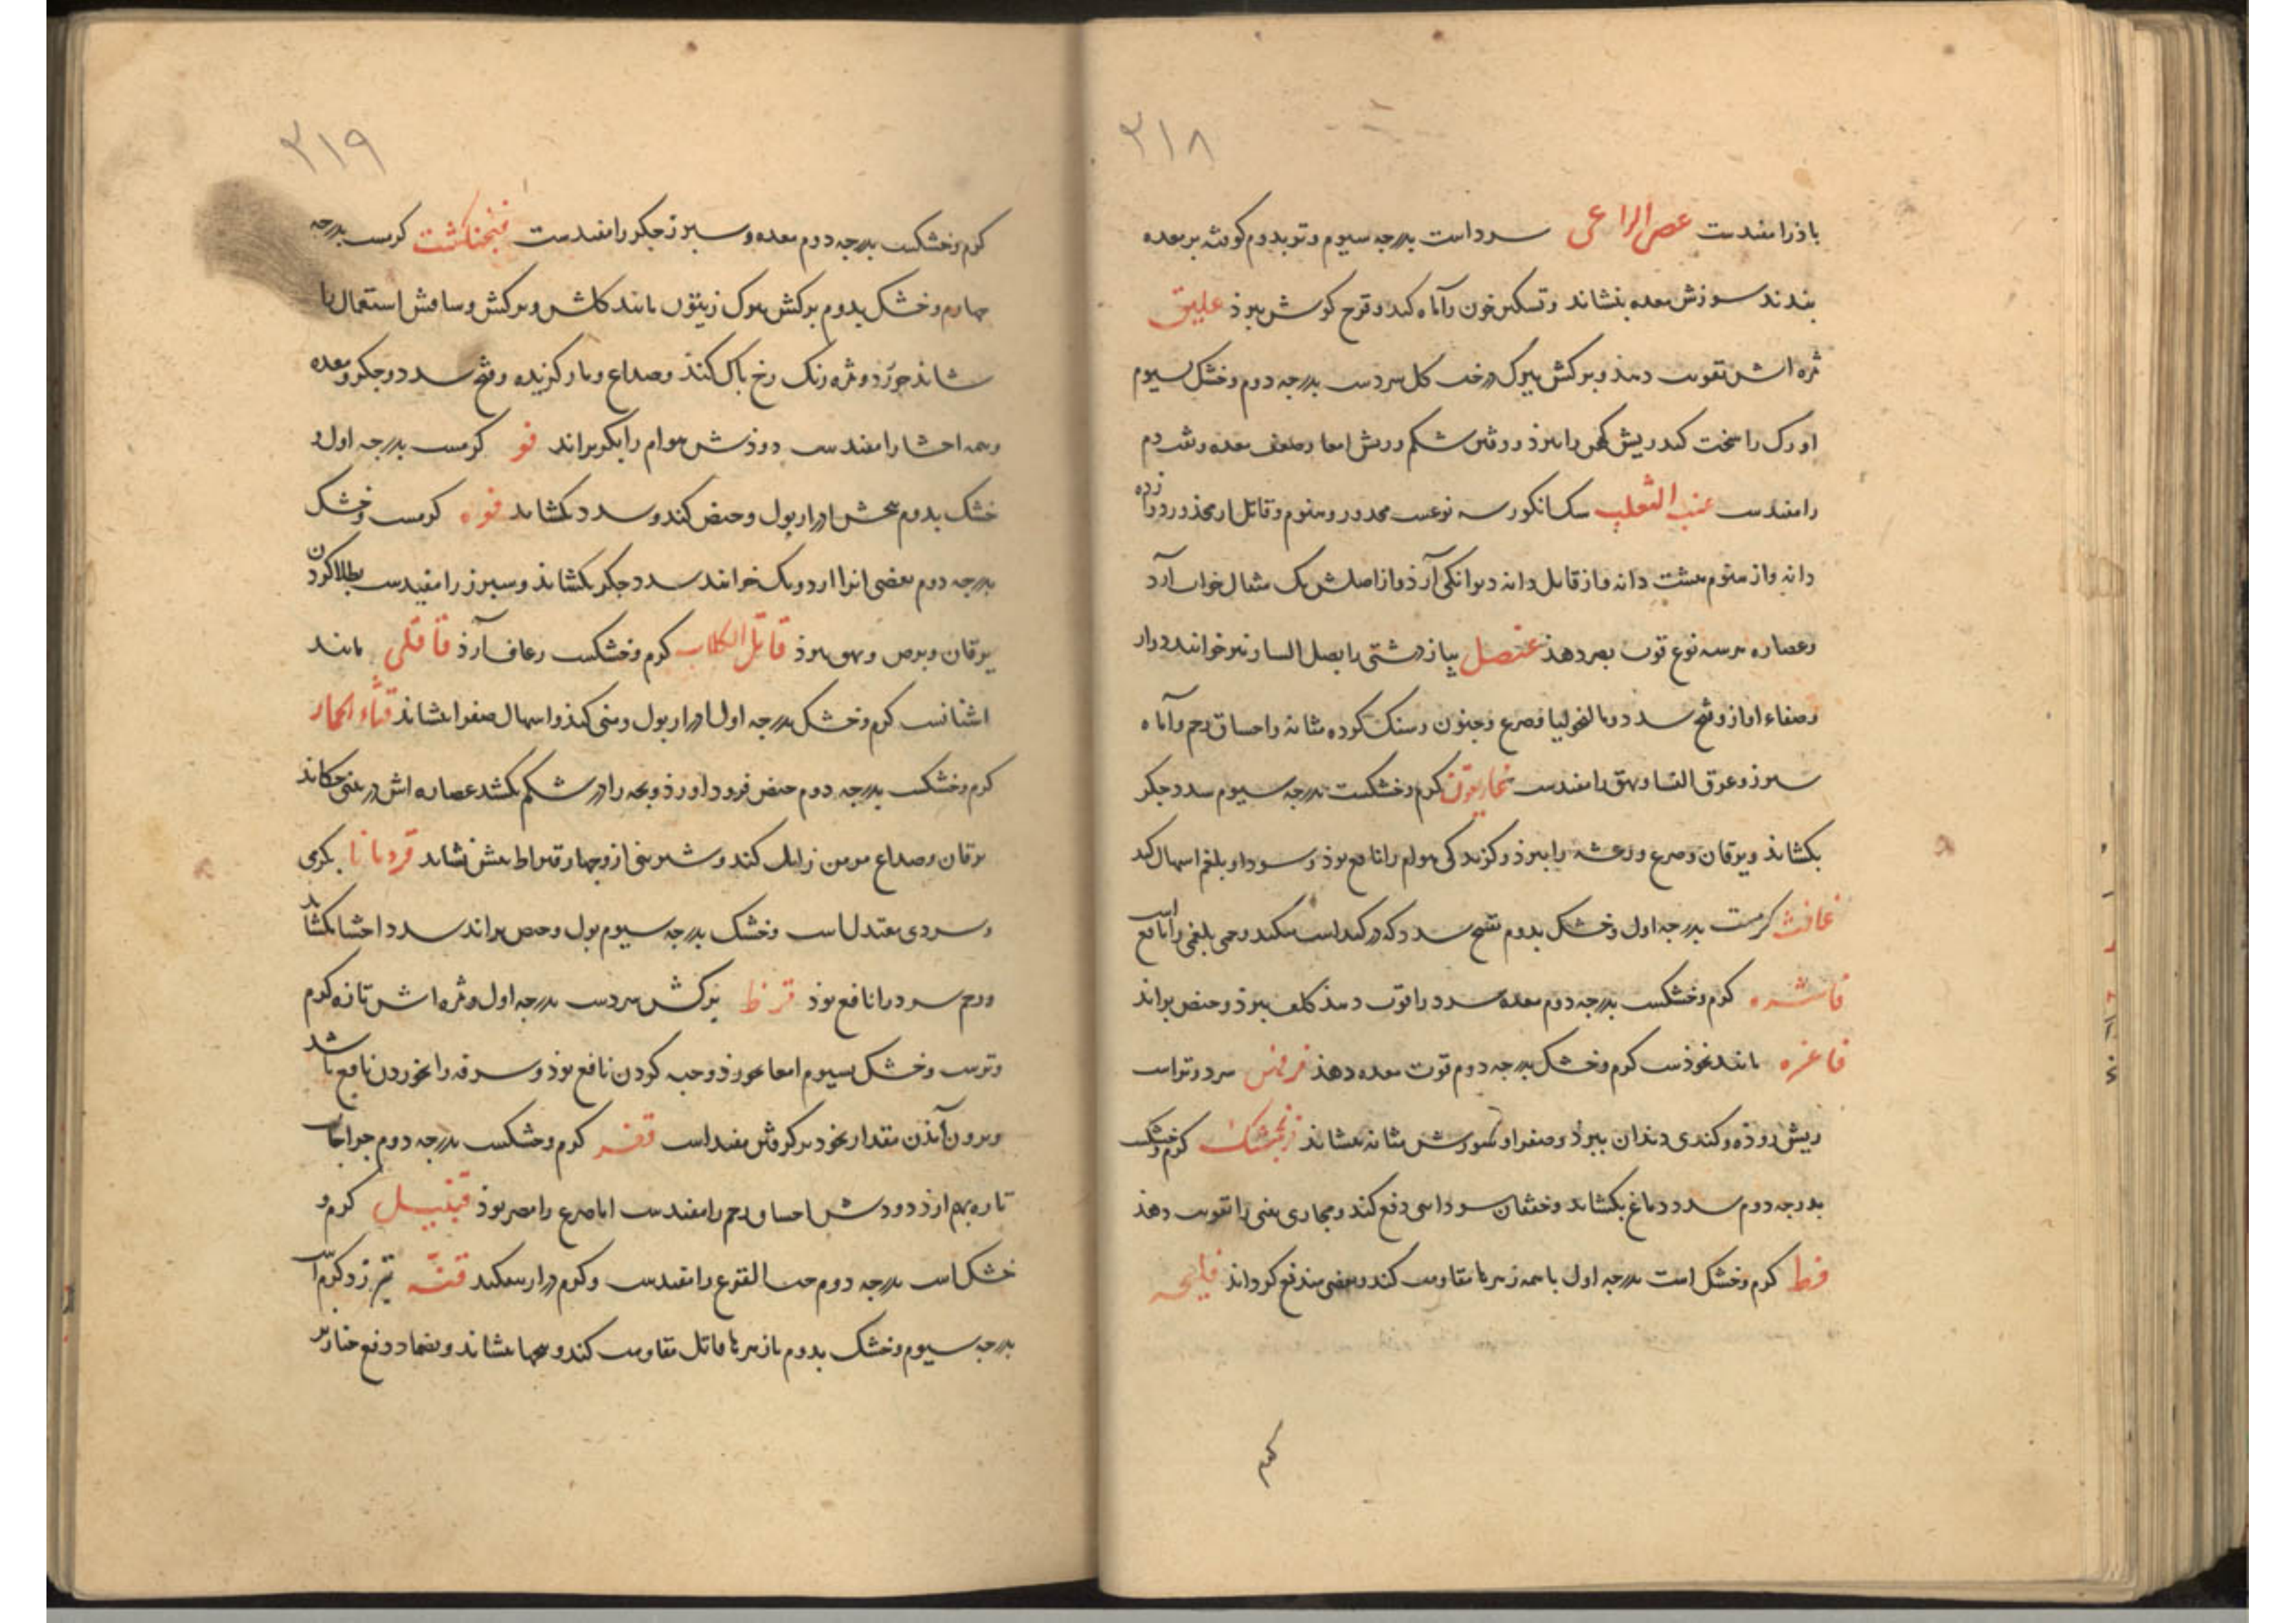 ۲۱۸
باذرا مفیدست عصی الراعی سرد است بدرجه سیوم و تر بدوم کوفته بر معده
بندند سوزش معده بنشاند و تسکین خون وآماه کند و قرح کوش ببرذ علیق
ثمره اش تقویت دهذ و برکش ببرک درخت کل سردست بدرجه دوم و خشک بسیوم
اورک را سخت کند ریش کهن را ببرذ ورفتن شکم وریش امعا وضعف معده ونفث دم
را مفیدست عنب الثعلب سک انکور سه نوعست مخدر و منوم و قاتل از مخدر دوازده
دانه واز منوم هشت دانه واز قاتل دانه دیوانکی آرذ واز اصلش یک مثقال خواب آرد
وعصاره هر سه نوع قوت بصر دهذ عنصل پیاز دشتی را بصل الفار نیز خوانند درار
وصفاء اواز وفتح سدد ومالنخولیا وصرع وجنون وسنک کرده مثانه واختناق رحم وآماه
سپرز وعرق النسا وبهق را مفیدست غاریقون کرم وخشکست بدرجه سیوم سدد جکر
بکشاند ویرقان وصرع ورعشه را ببرذ وکزیدکی هوام را نافع بوذ وسودا وبلغم اسهال کند
غافث کرمست بدرجه اول وخشک بدوم تفتیح سدد که در کبد است میکند وحمی بلغمی را نافع است
فاشره کرم وخشکست بدرجه دوم معده سرد را قوت دهذ کلف ببرذ وحیض براند
فاغره مانند نخودست کرم وخشک بدرجه دوم قوت معده دهذ فرفس سرد وتر است
ریش روذه وکندی دندان ببرذ وصفرا وسوزش مثانه بنشاند فرنجمشک کرم وخشک
بدرجه دوم سدد دماغ بکشاند وخفقان سوداسی دفع کند ومجاری بینی را تقویت دهذ
فط کرم وخشک است بدرجه اول با همه زهرها مقاومت کند وبعضی مندفع کرداند فلیحه
کرم
۲۱۹
کرم وخشکست بدرجه دوم معده وسپرز وجکر را مفیدست فنجنکشت کرمست بدرجه
چهارم وخشک بدوم برکش ببرک زیتون مانند کلش وبرکش وساقش استعمال را
شاند جوزد وثمره رنک رخ پاک کند وصداع ومار کزیده وفتح سدد وجکر ومعده
وهمه احشا را مفیدست دوذش هوام را بکریزاند فو کرمست بدرجه اول و
خشک بدوم بیخش ادرار بول وحیض کند وسدد بکشاند فوه کرمست وخشک
بدرجه دوم بعضی انرا اردوبک خوانند سدد جکر بکشاند وسپرز را مفیدست بطلا کردن
یرقان وبرص وبهق ببرذ قاتل الکلاب کرم وخشکست رعاف آرذ قاقلی مانند
اشنانست کرم وخشک بدرجه اول ادرار بول ومنی کند واسهال صفرا بنشاند قثاء الحمار
کرم وخشکست بدرجه دوم حیض فرود اورذ وبچه را در شکم بکشد عصاره اش در بینی چکاند
یرقان وصداع مزمن زایل کند وشربتی ازو چهار قیراط بیش نشاند قردمانا بکرمی
وسردی معتدل است وخشک بدرجه سیوم بول وحیض براند سدد احشا بکشاند
ورحم سرد را نافع بوذ قرظ برکش سردست بدرجه اول وثمره اش تازه کرم
وترست وخشک بسیوم امعا بخورذ وحبه کردن نافع بوذ وسرفه را بخوردن نافع باشد
وبرون آمذن مقدار نخود برکرفتن مفید است قفر کرم وخشکست بدرجه دوم جراحات
تازه بهم ارذ دودش اختناق رحم را مفیدست اما صرع را مضر بوذ قنبیل کرم و
خشک است بدرجه دوم حب القرع را مفیدست وکرم دراز بیفکند قنه تیز زد کرم است
بدرجه سیوم وخشک بدوم با زهرها قاتل مقاومت کند وبضماد دفع خنازیر